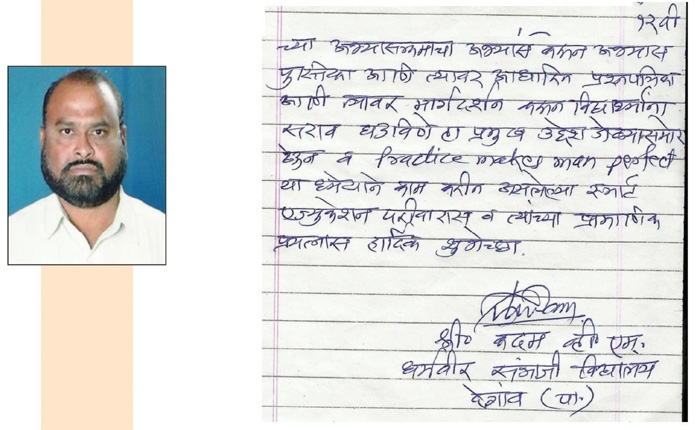 १२वी
च्या अभ्यासक्रमाचा अभ्यास करून अभ्यास
पुस्तिका आणि त्यावर आधारित प्रश्नपत्रिका
आणि त्यावर मार्गदर्शन करून विद्यार्थ्यांना
सराव घडविणे हा प्रमुख उद्देश डोळ्यासमोर
ठेऊन व Practice makes man perfect
या ध्येयाने काम करीत असलेल्या स्मार्ट
एज्युकेशन परीवारास व त्यांच्या प्रामाणिक
प्रयत्नास हार्दिक शुभेच्छा.
श्री० कदम व्ही. एम.
धर्मवीर संभाजी विद्यालय
देगांव (पा.)